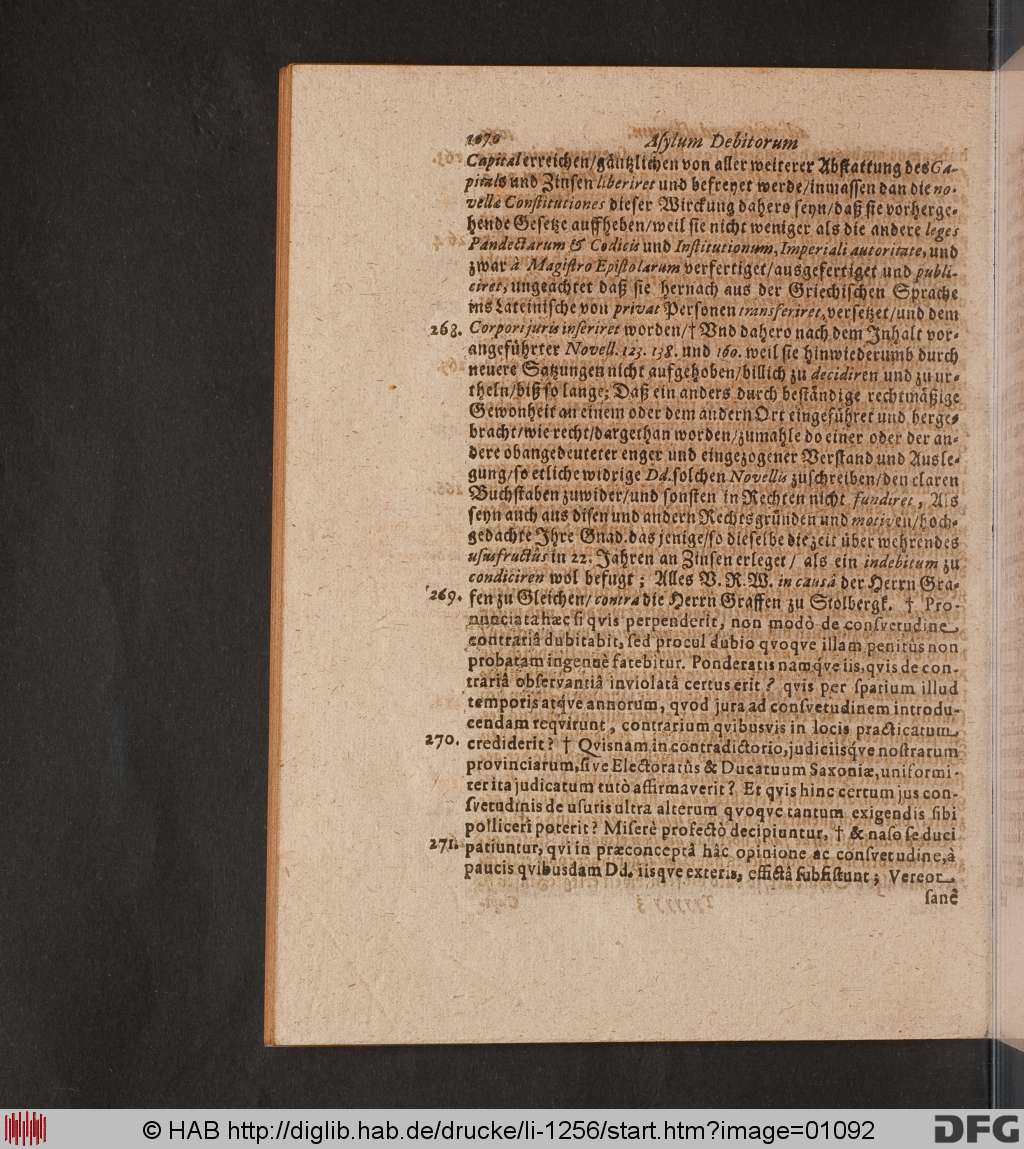 1070 Asylum Debitorum
Capital erreichen/gäntzlichen von aller weiterer Abstattung des Ca-
pitals und Zinsen liberiret und befreyet werde/inmassen dan die no-
vellæ Constitutiones dieser Wirckung dahero seyn/daß sie vorherge-
hende Gesetze auffheben/weil sie nicht weniger als die andere leges
Pandectarum & Codicis und Institutionum, Imperiali autoritate, und
zwar à Magistro Epistolarum verfertiget/ausgefertiget und publi-
ciret, ungeachtet daß sie hernach aus der Griechischen Sprache
ins Lateinische von privat Personen transferiret, versetzet/und dem
268. Corpori juris inseriret worden/† Und dahero nach dem Inhalt vor-
angeführter Novell. 123. 138. und 160. weil sie hinwiederumb durch
neuere Satzungen nicht aufgehoben/billich zu decidiren und zu ur-
theln/biß so lange; Daß ein anders durch beständige rechtmäßige
Gewonheit an einem oder dem andern Ort eingeführet und herge-
bracht/wie recht/dargethan worden/zumahle do einer oder der an-
dere obangedeuteter enger und eingezogener Verstand und Ausle-
gung/so etliche widrige Dd. solchen Novellis zuschreiben/den claren
Buchstaben zuwider/und sonsten in Rechten nicht fundiret, Als
seyn auch aus disen und andern Rechtsgründen und motiven/hoch-
gedachte Ihre Gnad. das jenige/so dieselbe die zeit über wehrendes
ususfructûs in 22. Jahren an Zinsen erleget / als ein indebitum zu
condiciren wol befugt; Alles V. R. W. in causâ der Herrn Gra-
269. fen zu Gleichen/ contra die Herrn Graffen zu Stolbergk. † Pro-
nunciata hæc si qvis perpenderit, non modò de consvetudine
contrariâ dubitabit, sed procul dubio qvoqve illam penitus non
probatam ingenuè fatebitur. Ponderatis namqve iis, qvis de con-
trariâ observantiâ inviolatâ certus erit? qvis per spatium illud
temporis atqve annorum, qvod jura ad consvetudinem introdu-
cendam reqvirunt, contrarium qvibusvis in locis practicatum
270. crediderit? † Qvisnam in contradictorio, judiciisqve nostrarum
provinciarum, sive Electoratûs & Ducatuum Saxoniæ, uniformi-
ter ita judicatum tutò affirmaverit? Et qvis hinc certum jus con-
svetudinis de usuris ultra alterum qvoqve tantum exigendis sibi
polliceri poterit? Miserè profectò decipiuntur, † & naso se duci
271. patiuntur, qvi in præconceptâ hâc opinione ac consvetudine, à
paucis qvibusdam Dd. iisqve exteris, effictâ subsistunt; Vereor
sanè
© HAB http://diglib.hab.de/drucke/li-1256/start.htm?image=01092
DFG